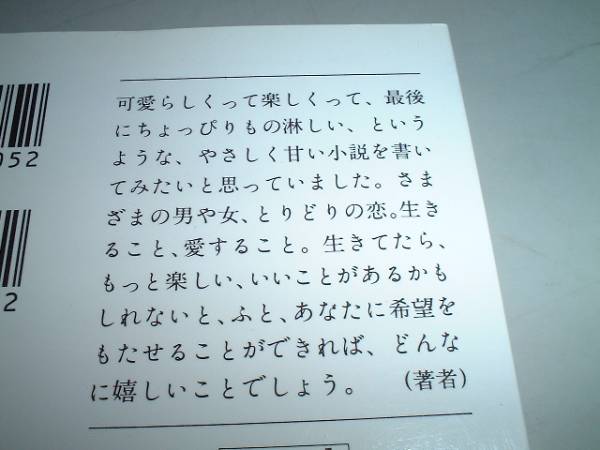 可愛らしくって楽しくって、最後
にちょっぴりもの淋しい、という
ような、やさしく甘い小説を書い
てみたいと思っていました。さま
ざまの男や女、とりどりの恋。生き
ること、愛すること。生きてたら、
もっと楽しい、いいことがあるかも
しれないと、ふと、あなたに希望を
もたせることができれば、どんな
に嬉しいことでしょう。 (著者)
052
2